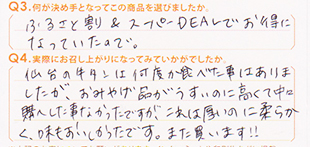 Q3.何が決め手となってこの商品を選びましたか。
ふるさと割&スーパーDEALでお得に
なっていたので。
Q4.実際にお召し上がりになってみていかがでしたか。
仙台の牛タンは何度か食べた事はありま
したが、おみやげ品がうすいのに高くて中々
購入した事なかったですが、これは厚いのに柔らか
く、味もおいしかったです。また買います!!